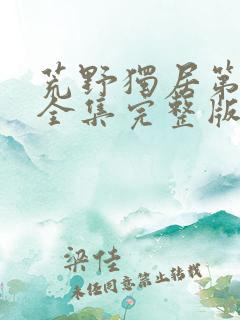 荒野獨居第
全集完整版
梁佳
未经同意禁止转载